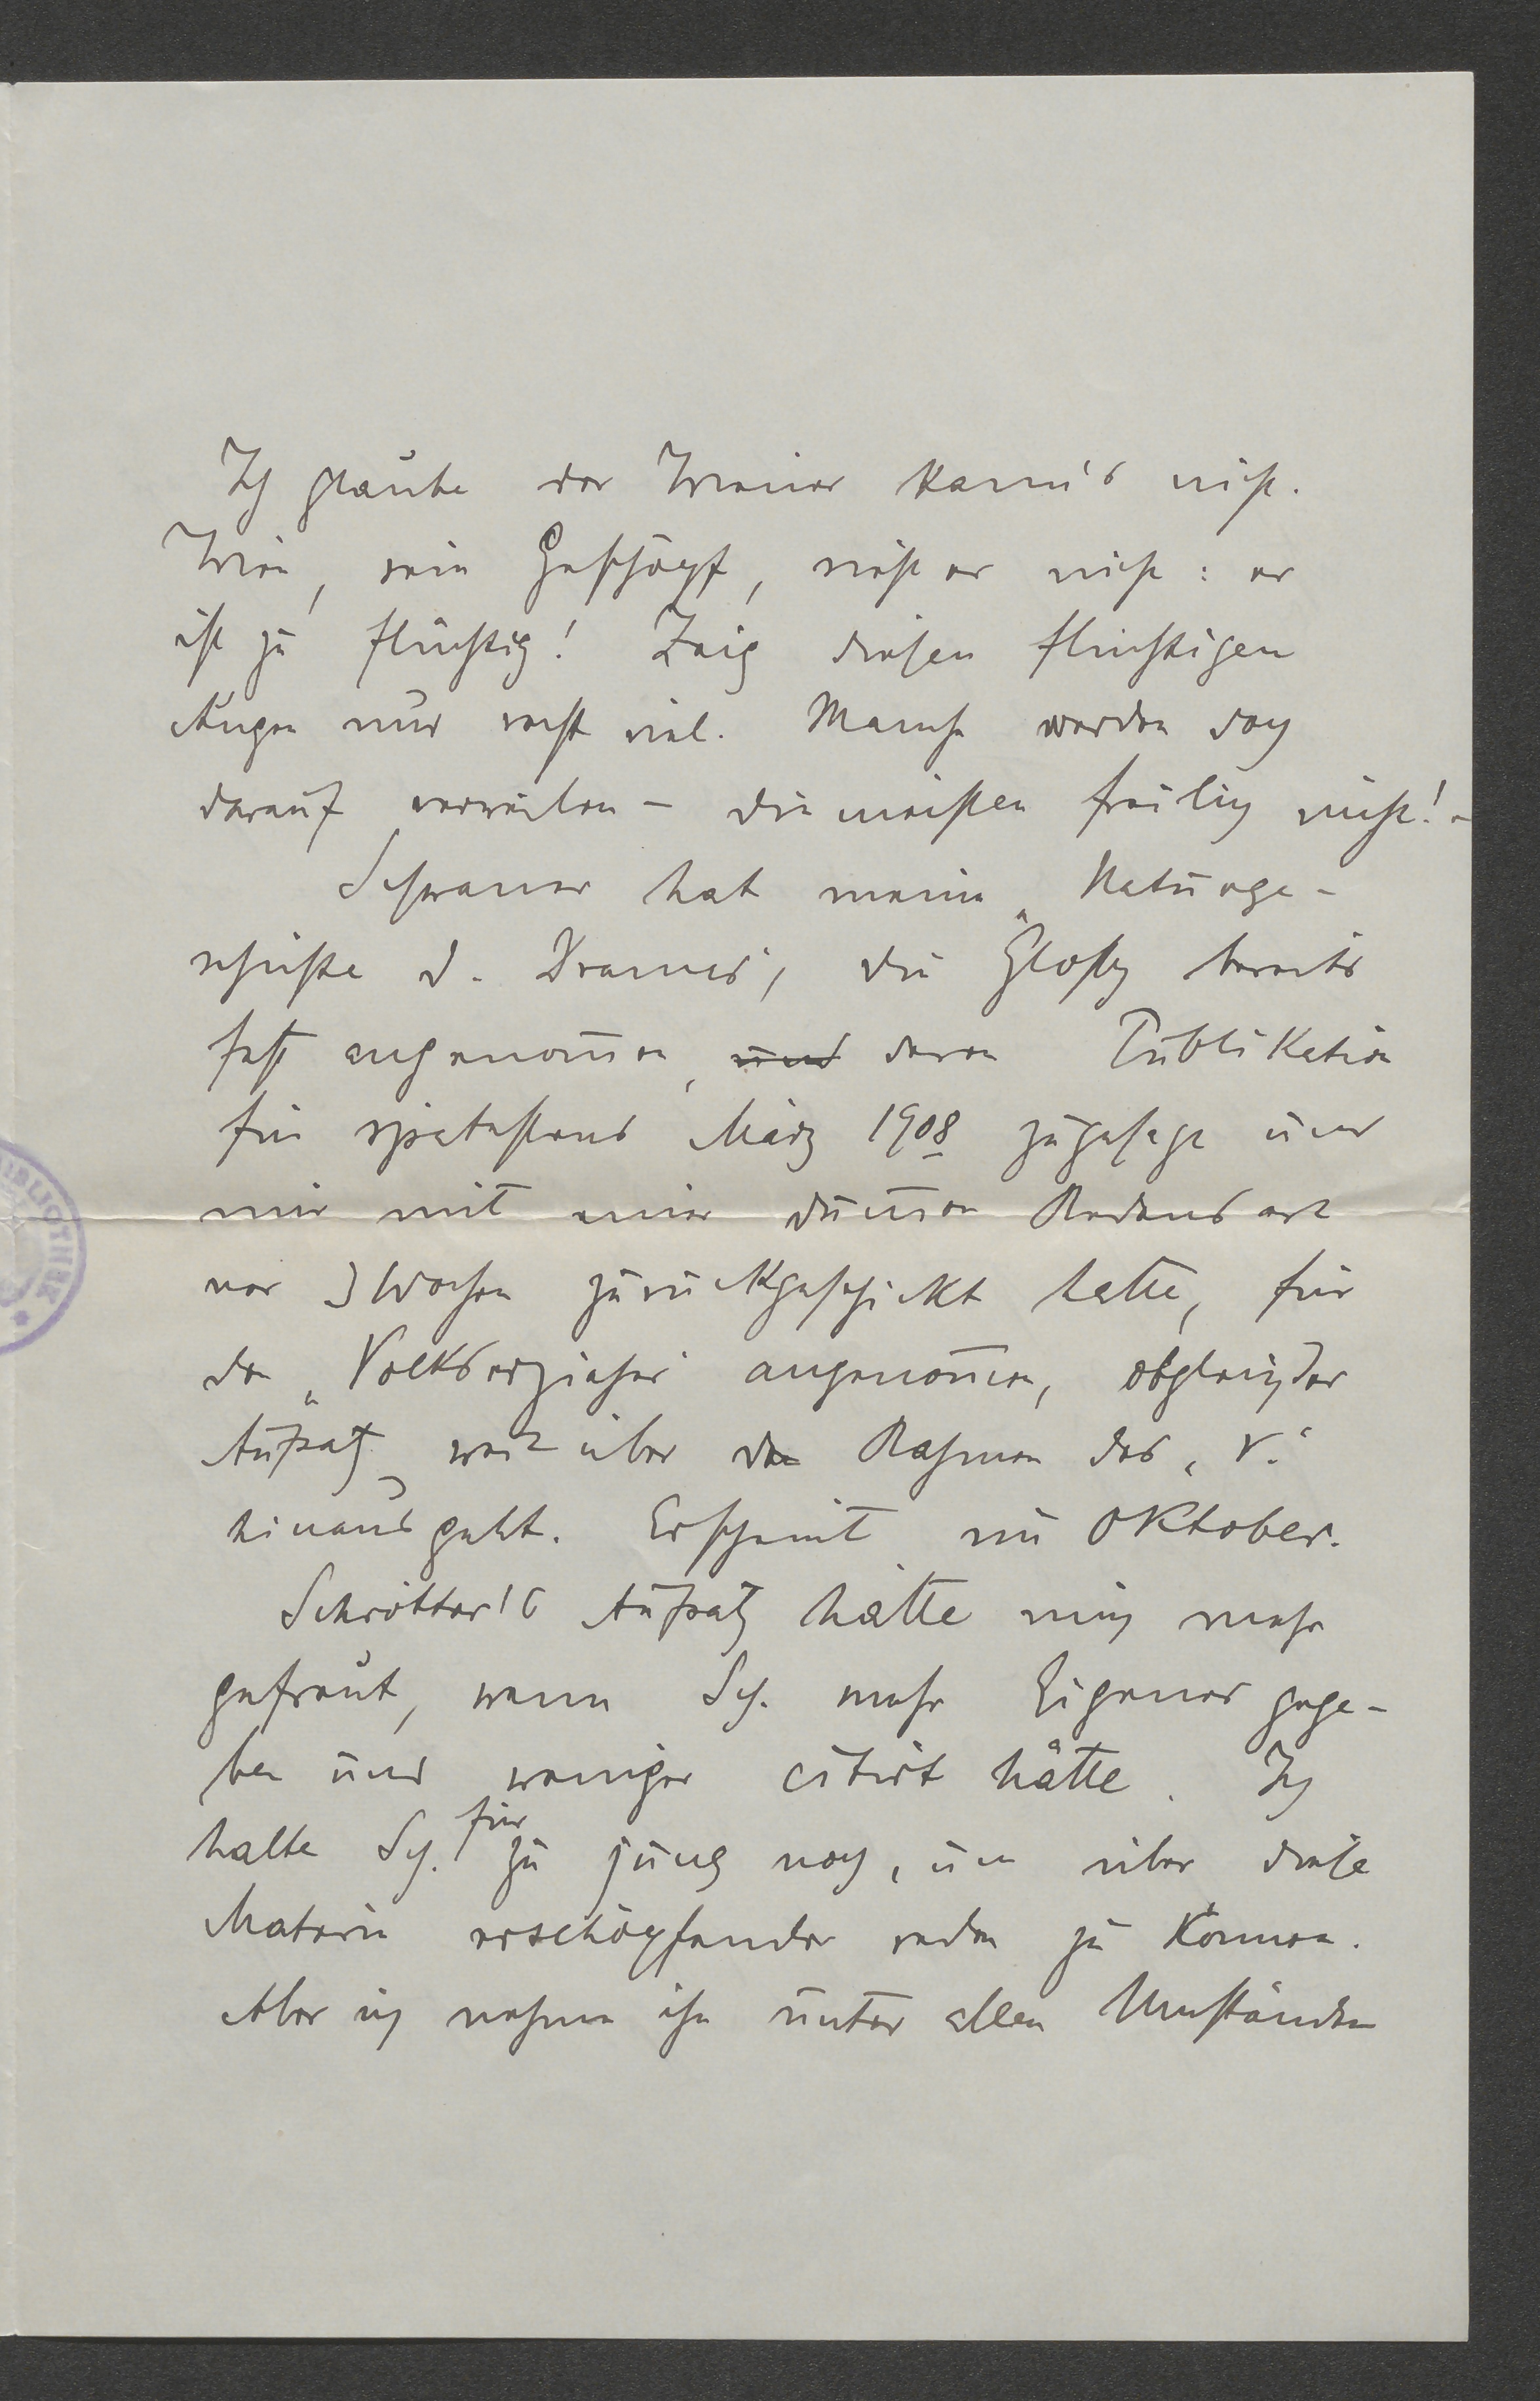 Ich glaube der Wiener kann's nicht.
Wien, sein Geschöpf, sieht er nicht: er
ist zu flüchtig! Zeig diesen flüchtigen
Augen nur recht viel. Manche werden doch
darauf verweilen – die meisten freilich nicht! –
Schwaner hat meine „Naturge-
schichte d. Dramas", die Glossy bereits
fest angenommen, und deren Publikation
für spätestens März 1908 zugesagt und
mir mit einer dummen Redensart
vor 3 Wochen zurückgeschickt hatte, für
den „Volkserzieher" angenommen, obgleich der
Aufsatz weit über den Rahmen des „V."
hinausgeht. Erscheint im Oktober.
Schrötter's Aufsatz hätte mich mehr
gefreut, wenn Sch. mehr Eigenes gege-
ben und weniger citirt hätte. Ich
halte Sch. für zu jung noch, um über diese
Materie erschöpfender reden zu können.
Aber ich nehme ihn unter allen Umständen
BIBLIOTHEK